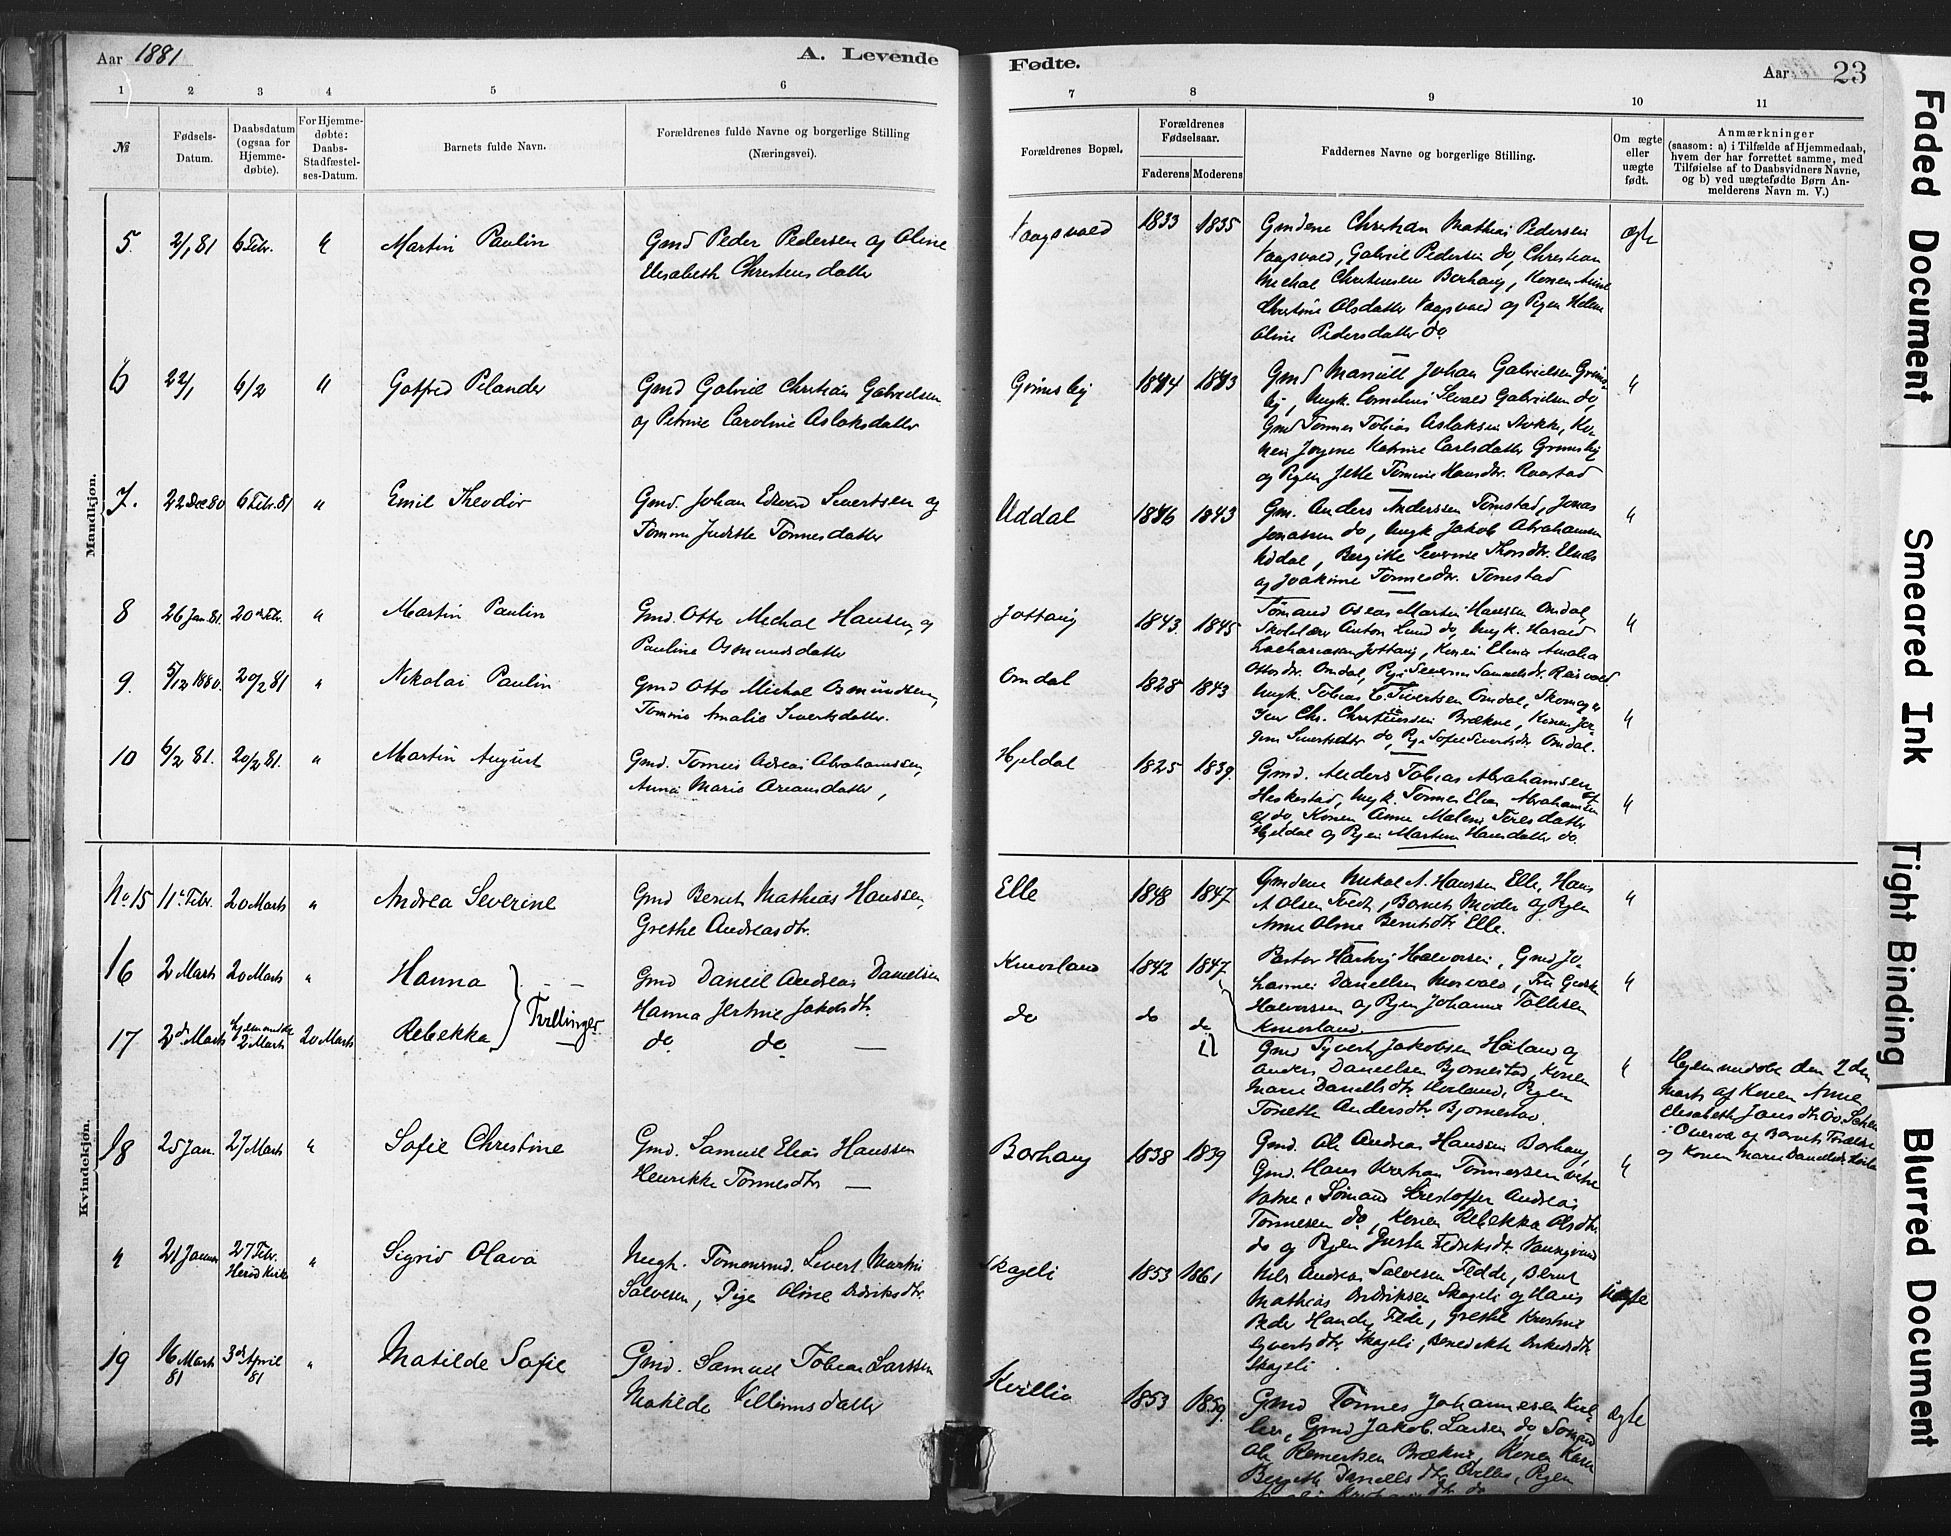 Aar 1881
A. Levende
Fødte.
Aar 23
1 2 3 4 5 6
7 8 9 10 11
№
Fødsels-
Datum.
Daabsdatum
(ogsaa for
Hjemme-
døbte).
For Hjemme-
døbte:
Daabs-
Stadfæstel-
ses-Datum.
Barnets fulde Navn.
Forældrenes fulde Navne og borgerlige Stilling
(Næringsvei).
Forældrenes Bopæl.
Forældrenes
Fødselsaar.
Faderens Moderens
Faddernes Navne og borgerlige Stilling.
Om ægte
eller
uægte
født.
Anmærkninger
(saasom: a) i Tilfælde af Hjemmedaab,
hvem der har forrettet samme, med
Tilføielse af to Daabsvidners Navne,
og b) ved uægtefødte Børn An-
melderens Navn m. V.)
Mandkjøn.
5. 2/1 81 6 Febr. " Martin Paulin
Gmd Peder Pedersen og Oline
Elisabeth Christensdatter
Vaagsvold 1833 1835
Gmdene Christian Mathias Pedersen
Vaagsvold, Gabriel Pedersen do, Christian
Michal Christensen Borhaug, Konen
Christine Olsdatter Vaagsvold og Pigen Helene
Oline Pedersdatter do
ægte
6 22/1 6/2 " Gotfred Pelander
Gmd Gabriel Christian Gabrielsen
og Petrine Caroline Aslaksdatter
Grimsby 1844 1843
Gmd Johan Gabrielsen Grims-
by, Ungk. Cornelius Sevald Gabrielsen do,
Gmd Tønnes Tobias Aslaksen Stokke, Ko-
nen Katrine Carlsdatter Grimsby
og Pigen Jette Tomine Hansdtr. Raastad
"
7. 22 Dec 80 6 Febr. 81 " Emil Theodor
Gmd. Johan Edvard Sivertsen og
Tomine Judithe Tønnesdatter
Uddal 1846 1843
Gm. Anders Anderssen Tomstad, Jonas
Jonassen do, Ungk Jakob Abrahamsen
Uddal, Bergitte Severine
og Joakime Tønnesdtr. Tomstad
"
8 26 Jan. 81. 20de Febr. " Martin Paulin
Gmd. Otto Michal Hansen og
Pauline Osmundsdatter
Jøttaug 1843. 1845
Sømand Oseas Martin Hansen Omdal,
Skolelærer Anton Lund do, Ungk. Harald
Zachariassen Jøttaug, Konen Elene Amalia
Ottosdtr. Omdal, Pige Severine Samuelsdtr.
"
9. 5/12 1880. 20/2 81 " Nikolai Paulin
Gmd Otto Michal Osmundsen,
Tomine Amalie Sivertsdatter.
Omdal 1828 1843
Ungk. Tobias C. Sivertsen Omdal, Skomager
Chr. Christensen Brækne, Konen Jør-
gine Sivertsdtr do, Pige Sofie Sivertsdtr Omdal.
"
10 6/2 81. 20/2 81. " Martin August
Gmd. Tønnes Adreas Abrahamssen,
Anne Marie Arians datter,
Hjeldal 1825 1839.
Gmd. Anders Tobias Abrahamsen
Heskestad, Ungk. Tønnes Elias Abrahamsen
do, Konen Anne Malene datter
Hjeldal og Pigen Martine Hansdatter do.
"
Kvindekjøn.
No. 15 11te Febr. 20 Marts " Andrea Severine
Gmd Bernt Mathias Hanssen,
Grethe Andreasdtr.
Elle 1848 1847
Gmdene Mikal A. Hanssen Elle, Hans
A Olsen Tvedt, Barnets Moder og Pigen
Anne Oline Berntsdtr. Elle.
"
16 2 Marts 20 Marts " Hanna
Gmd Daniel Andreas Danielsen
Hanna Jertine Jakobsdtr.
Knivsland 1842 1847
Pastor Hartvig Halvorsen, Gmd Jo-
hannes Danielsen, Fru
Halvorssen og Pigen Johanne Tollisen
Knivsland.
"
17 2de Marts hjemmedøbt 2 Marts 20 Marts Rebekka
Tvillinger
do do —
do do do
Gmd Syvert Jakobsen Høiland og
Anders Danielsen Bjørnestad, Konen
Marie Danielsdtr. Høiland, Pigen
Tonette Andersdtr. Bjørnestad.
"
Hjemmedøbt den 2den
Marts af Konen Anne
Elisabeth Jansdtr
i og Barnets Forældre
og Konen Marie Danielsdtr
18 25 Jan. 27 Marts " Sofie Christine
Gmd. Samuel Elias Hanssen
Henrikke Tønnesdtr —
Borhaug 1838 1839
Gmd. Ole Andreas Hanssen Borhaug,
Gmd. Hans Tønnessen
Vatne, Sømand Kristoffer Andreas
Tønnesen do, Konen Rebekka Olsdtr.
do og Pigen
"
" 21 Januar 27 Febr. Herød Kirke " Sigrid Olava
Ungk. Tømmermd. Sivert Martin
Salvesen, Pige Oline Didriksdtr.
Skageli 1853 1861
Nils Andreas Salvesen Fedde, Bernt
Mathias Didriksen Skageli og Hans
Peder Fede, Grethe Kristine
Syvertsdtr. Skageli, Benedikte Didriksdtr
Skageli.
uægte
19 16 Marts 81 3de April 81 " Matilde Sofie
Gmd. Samuel Tobias Larssen
Matilde Villumsdatter
Kvillio 1853 1859.
Gmd Tønnes Johannesen Kvil-
lio, Gmd Jakob Larsen do, Sømand
Ole Reinertsen Brækne, Konen Karen
Bergitte Danielsdtr, Pigen
ægte
Faded Document
Smeared Ink
Tight Binding
Blurred Document